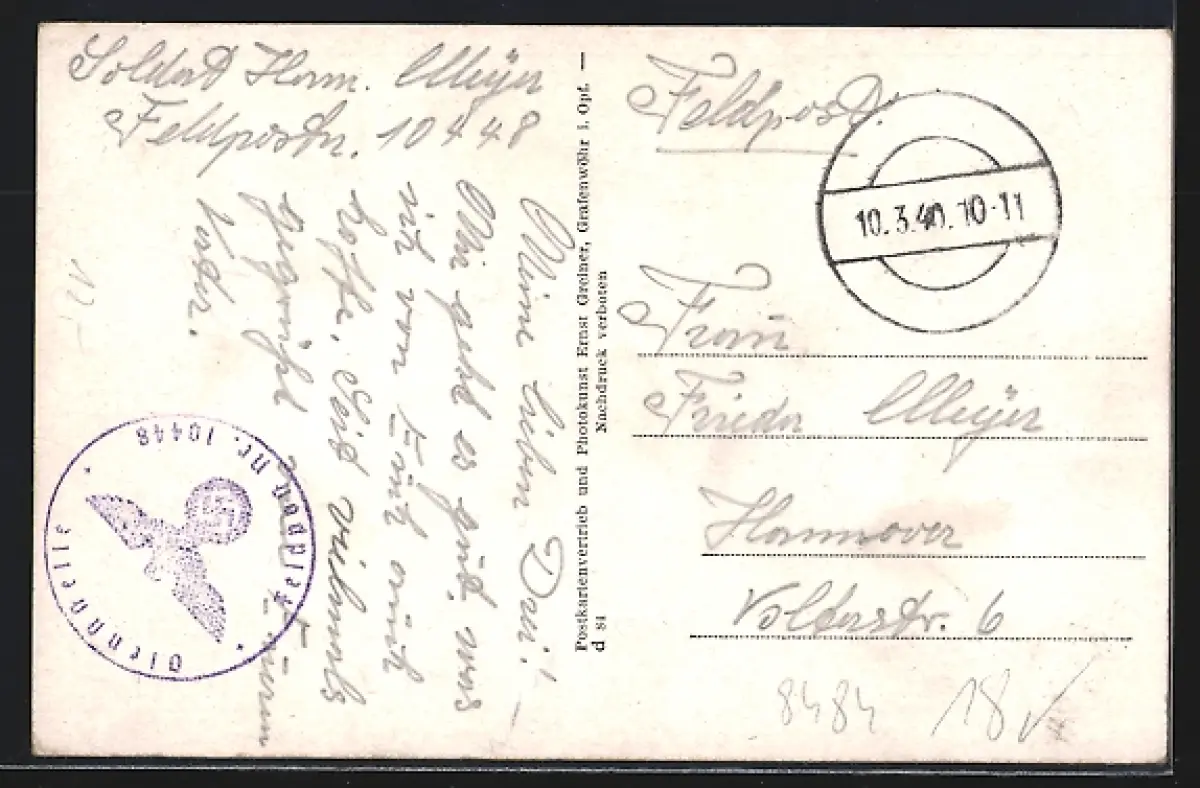 Soldat Herm. Meyer
Feldpostn. 10448
Meine lieben Drei!
Mir geht es gut, was
ich von Euch auch
hoffe. Seid vielmals
gegrüßt Euern
Vater.
12
Feldpost nr. 10448
Dienststelle
Postkartenvertrieb und Photokunst Ernst Greiner, Grafenwöhr i. Opf. —
Nachdruck verboten
d 81
Feldpost.
10.3.40.10-11
Frau
Frieda Meyer
Hannover
Volterstr. 6
8484 18